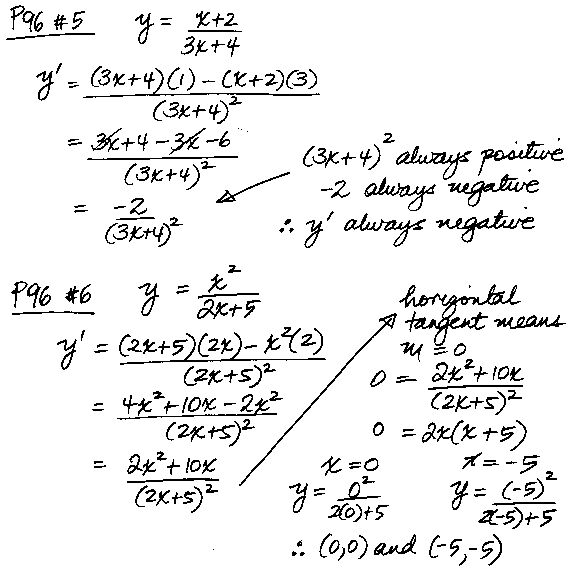 P96 #5 y = x+2 / 3x+4
y' = (3x+4)(1) - (x+2)(3) / (3x+4)²
= 3x+4-3x-6 / (3x+4)²
(3x+4)² always positive
-2 always negative
= -2 / (3x+4)²
∴ y' always negative
P96 #6 y = x² / 2x+5
y' = (2x+5)(2x) - x²(2) / (2x+5)²
= 4x²+10x-2x² / (2x+5)²
= 2x²+10x / (2x+5)²
horizontal
tangent means
m = 0
0 = 2x²+10x / (2x+5)²
0 = 2x(x+5)
x=0 x=-5
y = 0² / 2(0)+5 y = (-5)² / 2(-5)+5
∴ (0,0) and (-5,-5)